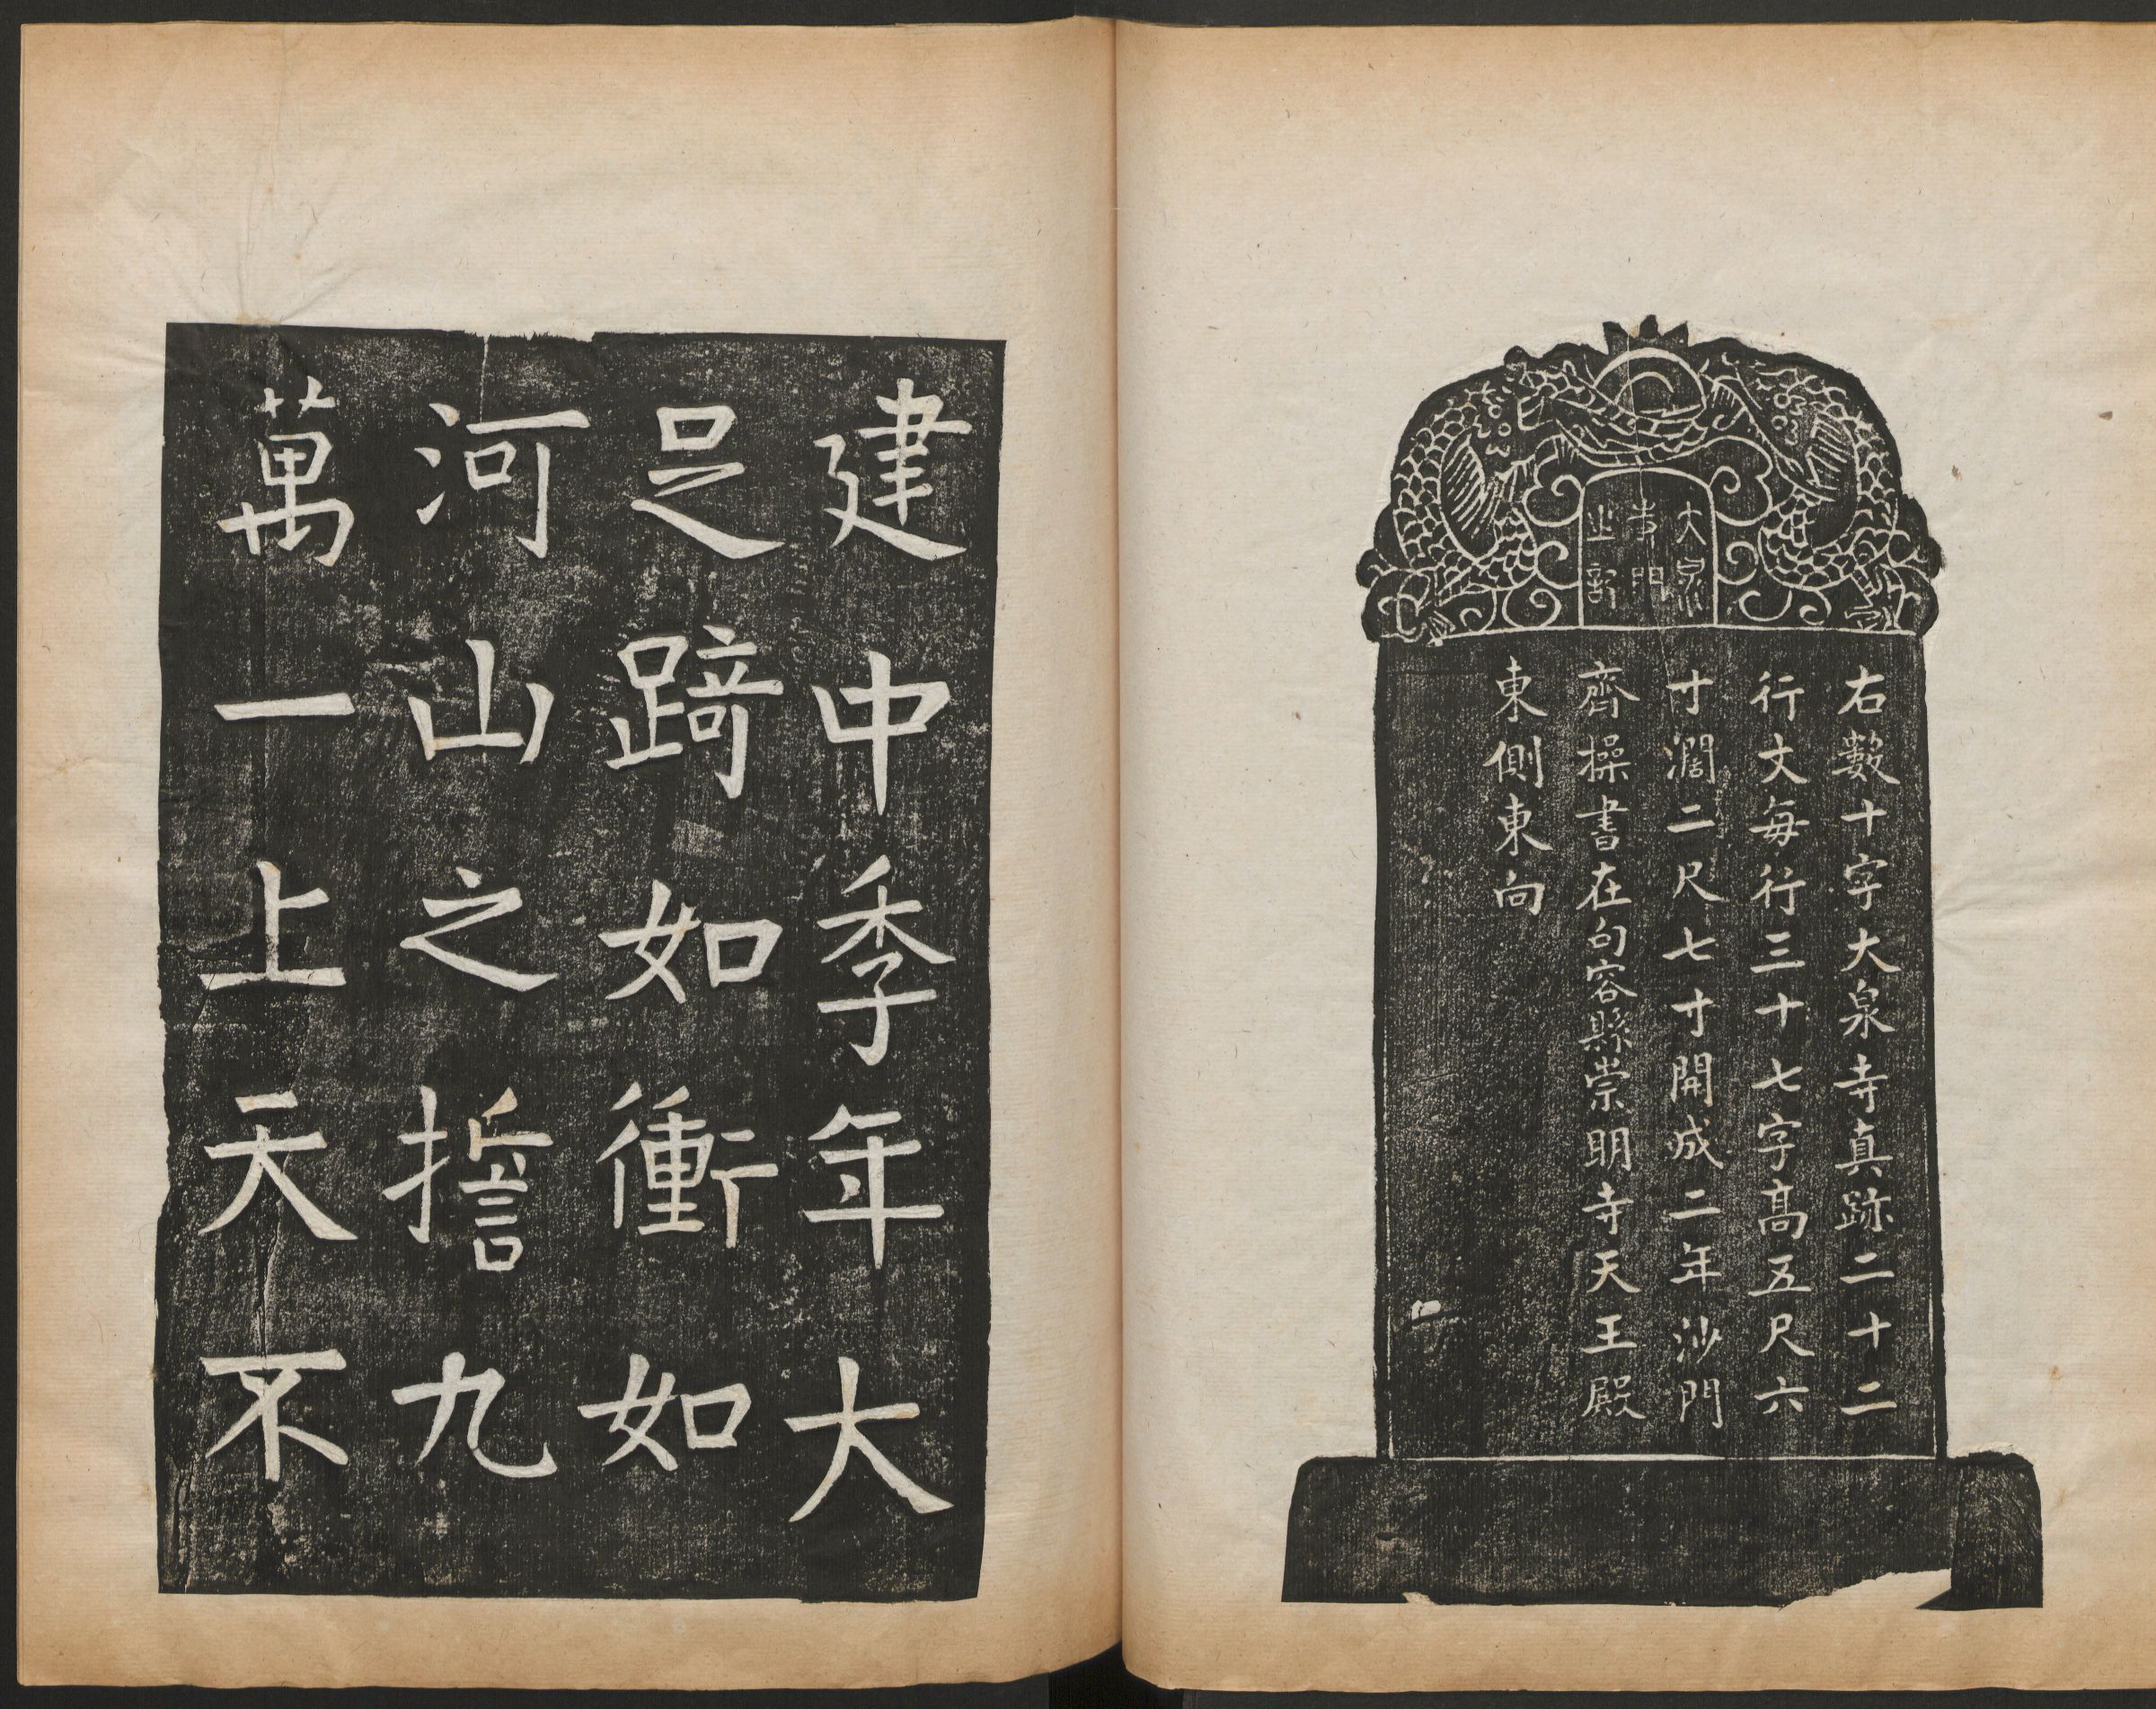 大泉
寺門
之記
右數十字大泉寺真跡二十二
行文每行三十七字高五尺六
寸濶二尺七寸開成二年沙門
齊操書在句容縣崇明寺天王殿
東側東向
建中季年大
足踦如衝如
河山之𢴇九
萬一上天不